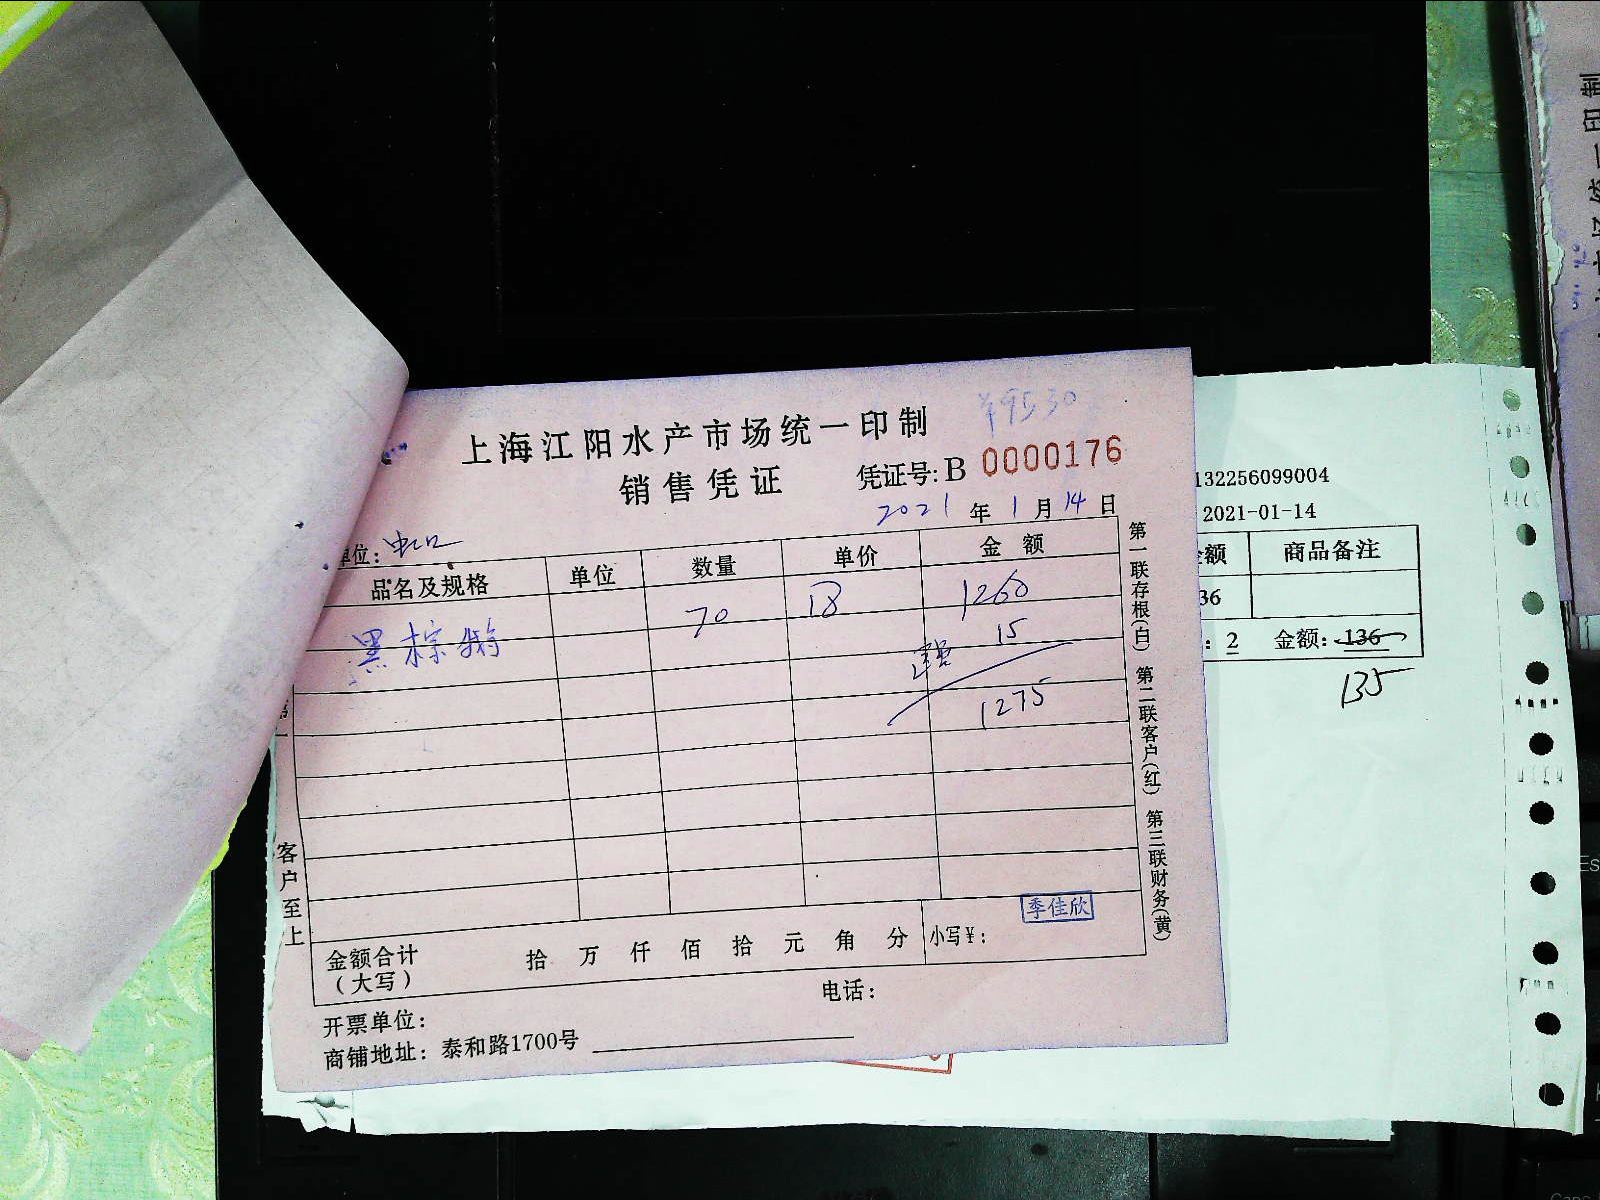 上海江阳水产市场统一印制
销售凭证
凭证号:B 0000176
2021 年 1 月 14 日
单位: 虹口
品名及规格 单位 数量 单价 金额
黑棕 70 18 1260
15
1275
第一联存根(白) 第二联客户(红) 第三联财务(黄)
客户至上
金额合计(大写) 拾 万 仟 佰 拾 元 角 分 小写¥:
季佳欣
电话:
开票单位:
商铺地址: 泰和路1700号
132256099004
2021-01-14
金额 商品备注
36
: 2 金额: 136
135